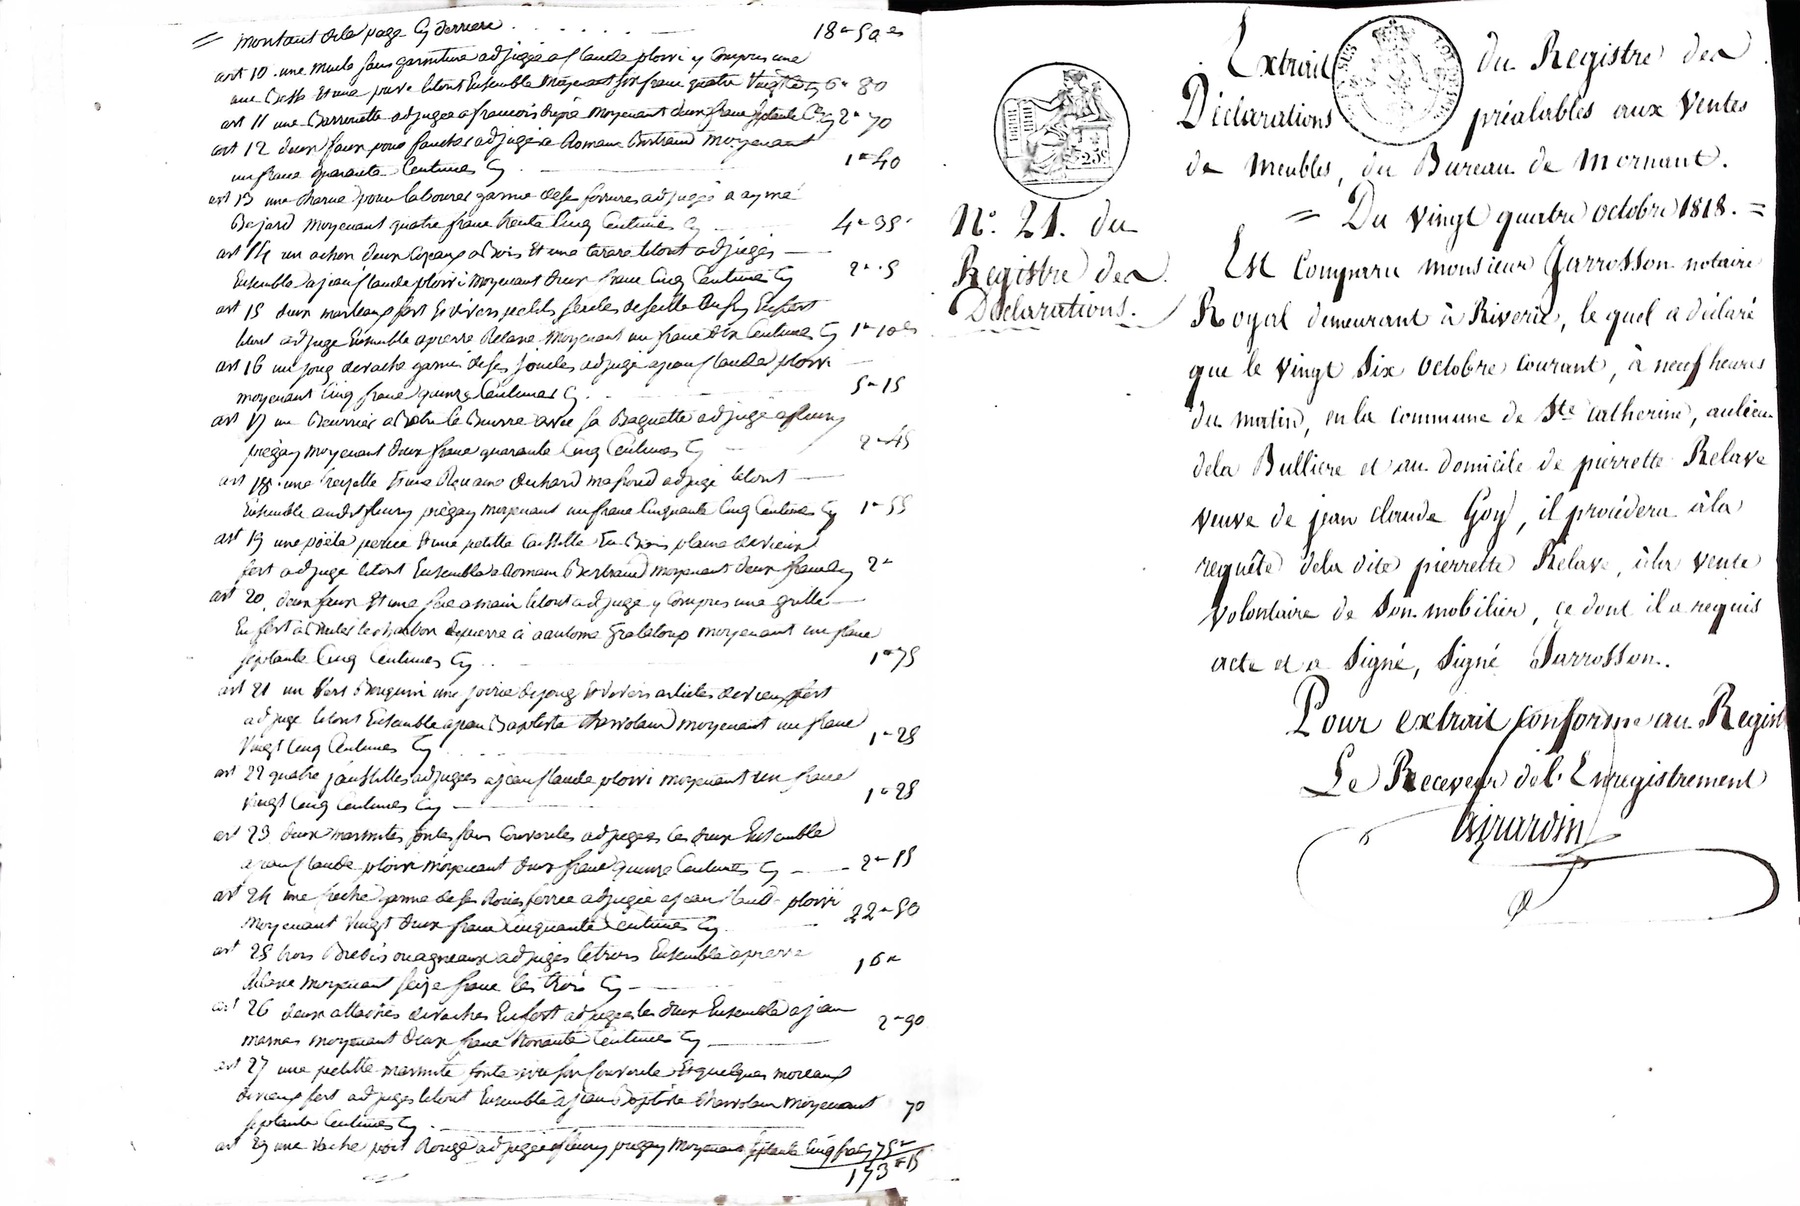 = montant de la page cy derriere 18 = 50 es
art 10 une meule sans garniture adjugée a Claude ployvi y Compris une
une Besse Et une paire letout Ensemble Moyenant six franc quatre Vingt cy 6 = 80
art 11 une Barrouette adjugée a francois moyenant deux franc septante Ces cy 2 = 70
art 12 deux faux pour faucher adjugé a Romain Bertrand moyenant
un franc quarante Centimes Cy 1 = 40
art 13 une charue pour labourer garnie de ses ferrures adjugée a aymé
Bejard moyenant quatre franc trente Cinq Centimes Cy 4 = 35
art 14 un achon deux a Bois Et une tarare letout adjugés
Ensemble a jean Claude ployvi moyenant deux franc Cinq Centimes Cy 2 = 5
art 15 deux marteaux fert Et divers petits Enfert
letout adjugé Ensemble a pierre Relave moyenant un franc dix Centimes Cy 1 = 10 es
art 16 un joug de vache garni de ses joucles adjugé a jean Claude ployvi
moyenant Cinq franc quinze Centimes Cy 5 = 15
art 17 un Beurrier a Batre le Beurre avec sa Baguette adjugé a fleury
piégay moyenant deux franc quarante Cinq Centimes Cy 2 = 45
art 18 une Et une adjugé letout
Ensemble audit fleury piégay moyenant un franc Cinquante Cinq Centimes Cy 1 = 55
art 19 une poële percée Et une petitte En Bois plaine de vieux
fert adjugé letout Ensemble a Romain Bertrand moyenant deux franc Cy 2 =
art 20 deux Et une a main letout adjugé y Compris une grille
En fert à Bruler le charbon de pierre à antoine moyenant un franc
septante Cinq Centimes Cy 1 = 75
art 21 un une paire de joug Et divers articles de vieux fert
adjugé letout Ensemble a jean Baptiste moyenant un franc
Vingt Cinq Centimes Cy 1 = 25
art 22 quatre adjugées a jean Claude ployvi moyenant un franc
Vingt Cinq Centimes Cy 1 = 25
art 23 deux marmites fontes sans Couvercles adjugées les deux Ensemble
a jean Claude ployvi moyenant deux franc quinze Centimes Cy 2 = 15
art 24 une garnie de ses Roues ferrée adjugée a jean Claude ployvi
moyenant Vingt deux franc Cinquante Centimes Cy 22 = 50
art 25 trois Brebis ou agneaux adjugés les trois Ensemble a pierre
Relave moyenant seize franc les trois Cy 16 =
art 26 deux attaches de vaches Enfert adjugées les deux Ensemble a jean
moyenant deux franc Nonante Centimes Cy 2 = 90
art 27 une petitte marmite fonte avec son Couvercle Et quelques morceaux
de vieux fert adjugés letout Ensemble à jean Baptiste moyenant 70
septante Centimes Cy
art 29 une vache poil Rouge adjugée a fleury piégay moyenant septante Cinq franc 75 =
173 = 15
Extrait du Registre des
Déclarations préalables aux Ventes
de meubles, du Bureau de Mornant.
= Du vingt quatre octobre 1818. =
N.° 21. du
Registre des
Déclarations.
Est Comparu monsieur Jarrosson notaire
Royal demeurant à Riverie, le quel a déclaré
que le vingt six octobre courant, à neuf heures
du matin, en la commune de Ste catherine, au lieu
dela Bulliere et au domicile de pierrette Relave
veuve de jean claude Goy, il procédera à la
requête dela dite pierrette Relave, à la vente
volontaire de son mobilier, ce dont il a requis
acte et a signé, signé Jarrosson.
Pour extrait conforme au Regist
Le Receveur de l'Enregistrement
Girardin